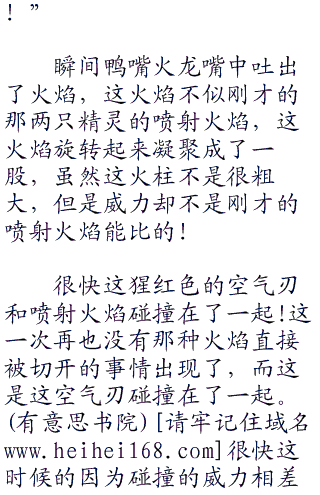 ！”
瞬间鸭嘴火龙嘴中吐出
了火焰，这火焰不似刚才的
那两只精灵的喷射火焰，这
火焰旋转起来凝聚成了一
股，虽然这火柱不是很粗
大，但是威力却不是刚才的
喷射火焰能比的！
很快这猩红色的空气刃
和喷射火焰碰撞在了一起！这
一次再也没有那种火焰直接
被切开的事情出现了，而这
是这空气刃碰撞在了一起。
(有意思书院)[请牢记住域名
www.heihei168.com]很快这
时候的因为碰撞的威力相差